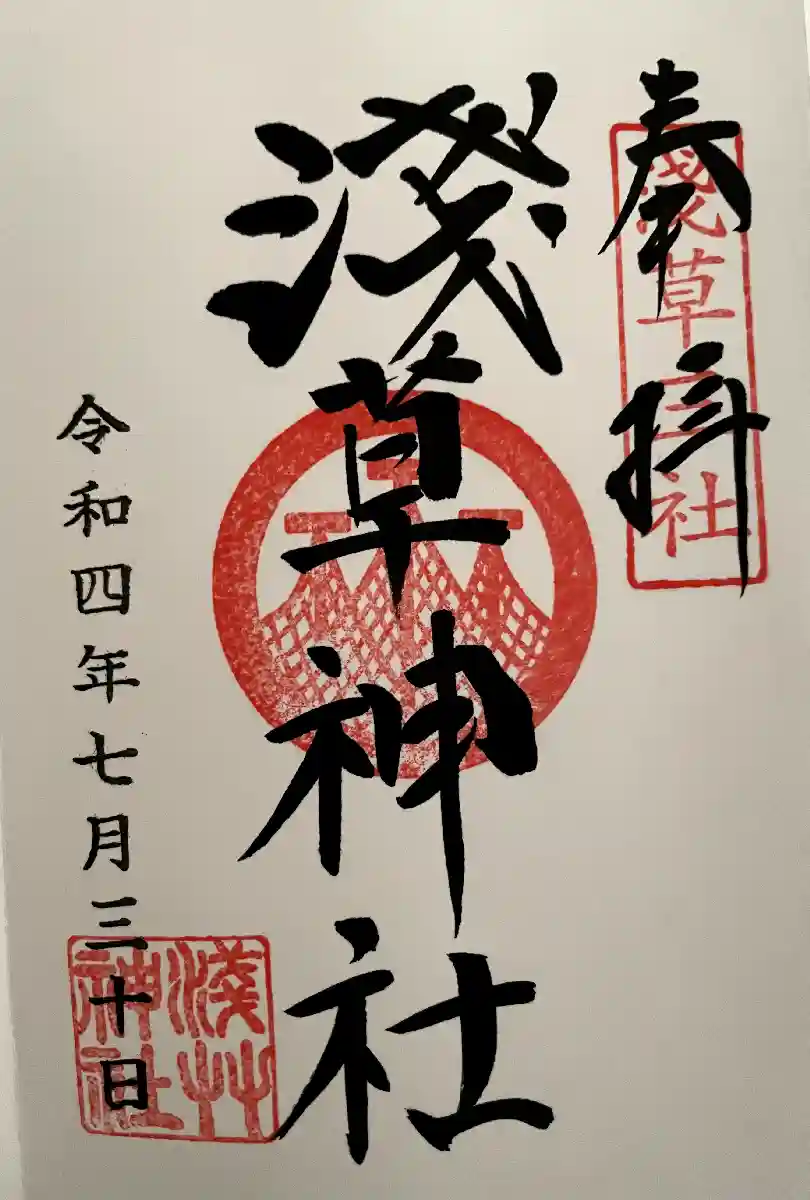 奉拝
淺草三社
淺草神社
令和四年七月三十日
淺艸神社